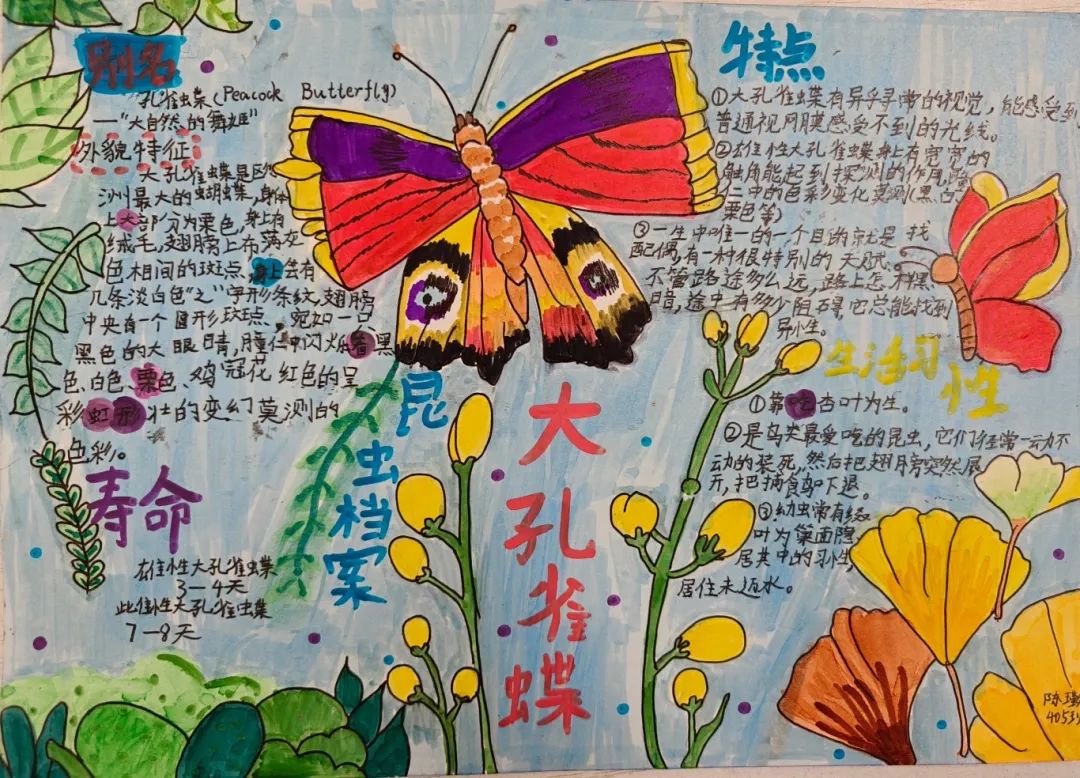 别名
孔雀蝶(Peacock Butterfly)
—"大自然的舞姬"
外貌特征
大孔雀蝶是欧
洲最大的蝴蝶,身体
上大部分为栗色,身上有
绒毛,翅膀上布满灰
色相间的斑点,身上会有
几条淡白色"之"字形条纹,翅膀
中央有一个圆形斑点,宛如一只
黑色的大眼睛,瞳仁中闪烁着黑
色、白色、栗色、鸡冠花红色的呈
彩虹形状的变幻莫测的
色彩。
寿命
雄性大孔雀蝶
3—4天
雌性大孔雀蝶
7—8天
昆虫档案
大孔雀蝶
特点
①大孔雀蝶有异乎寻常的视觉,能感受到
普通视网膜感受不到的光线。
②雄性大孔雀蝶身上有宽宽的
触角能起到探测的作用,瞳
仁中的色彩变化莫测(黑、白、
栗色等)
③一生中唯一的一个目的就是找
配偶,有一种很特别的天赋,
不管路途多么远,路上怎样黑
暗,途中有多少阻碍,它总能找到
异性。
生活习性
①靠吃杏叶为生。
②是鸟类最爱吃的昆虫,它们经常一动不
动的装死,然后把翅膀突然展
开,把捕食鸟吓退。
③幼虫常有缀
叶为巢而隐
居其中的习性,
居住未近水。
陈
405班